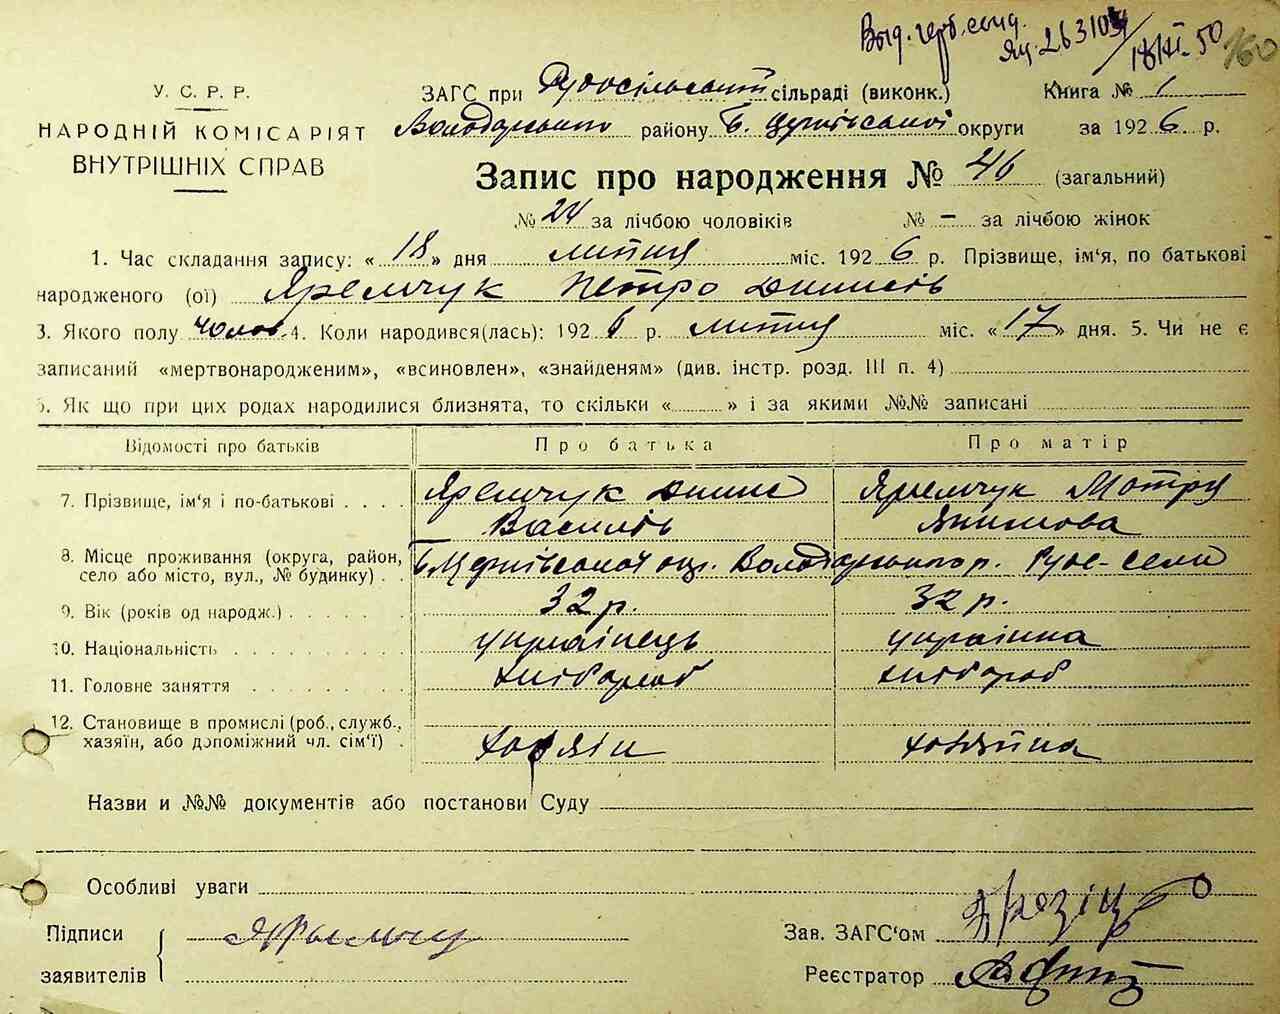 Выд. герб. свид.
160
У. С. Р. Р.
НАРОДНІЙ КОМІСАРІЯТ
ВНУТРІШНІХ СПРАВ
ЗАГС при Рудосільській сільраді (виконк.) Книга № 1
Володарського району Б. Церківської округи за 1926 р.
Запис про народження № 46 (загальний)
№ 24 за лічбою чоловіків № – за лічбою жінок
1. Час складання запису: «18» дня липня міс. 1926 р. Прізвище, ім'я, по батькові
народженого (ої) Яремчук Петро Дилисів
3. Якого полу чолов. 4. Коли народився(лась): 1926 р. липня міс. «17» дня. 5. Чи не є
записаний «мертвонародженим», «всиновлен», «знайденям» (див. інстр. розд. III п. 4)
6. Як що при цих родах народилися близнята, то скільки « » і за якими №№ записані
Відомості про батьків Про батька Про матір
7. Прізвище, ім'я і по-батькові Яремчук Яремчук Мотря
Василів Якимова
8. Місце проживання (округа, район, Б Церківської окр. Володарського р. Руде-село
село або місто, вул., № будинку)
9. Вік (років од народж.) 32 р. 32 р.
10. Національність українець українка
11. Головне заняття хлібороб хлібороб
12. Становище в промислі (роб., служб.,
хазяїн, або допоміжний чл. сім'ї) хозяін хозяйка
Назви и №№ документів або постанови Суду
Особливі уваги
Підписи
заявителів
Зав. ЗАГС'ом
Реєстратор